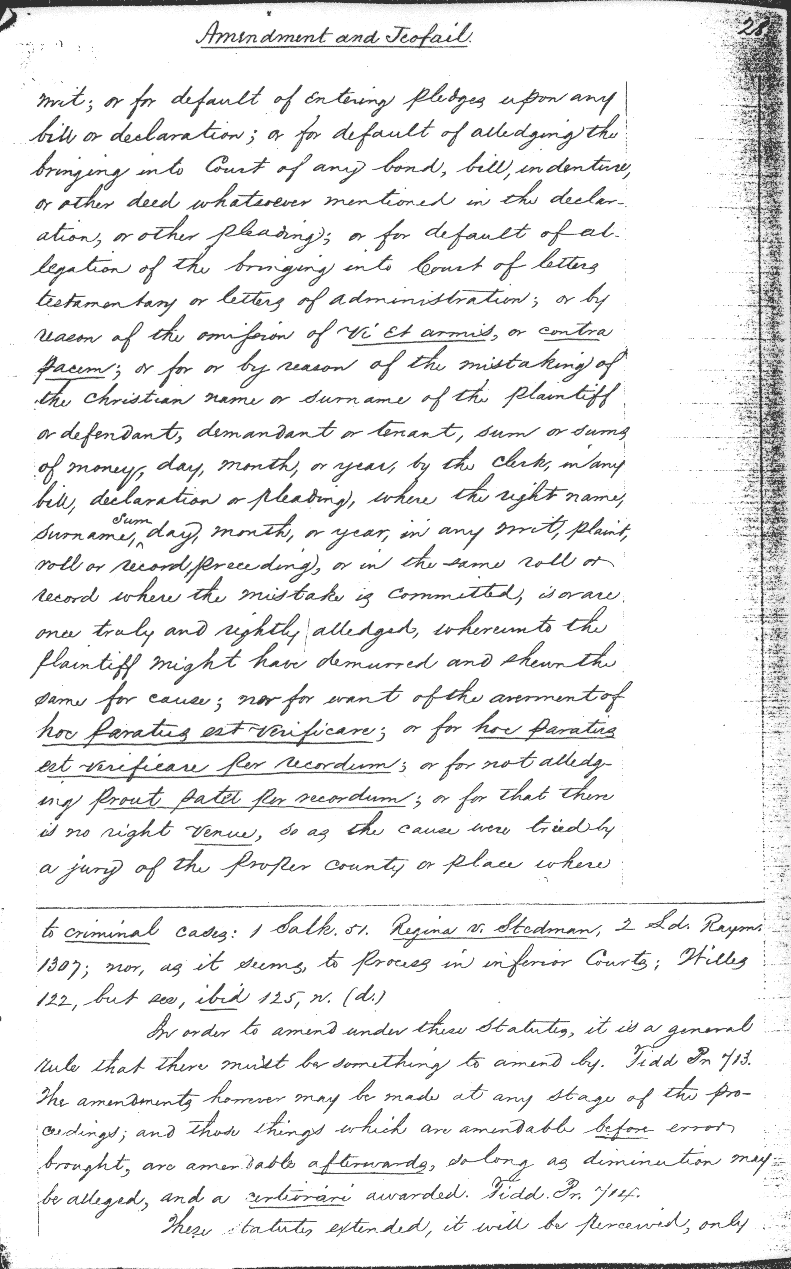 Amendment and Jeofail.
28
writ; or for default of entering pledges upon any
bill or declaration; or for default of alledging the
bringing into Court of any bond, bill, indenture,
or other deed whatsoever mentioned in the declar-
ation, or other pleading; or for default of al-
legation of the bringing into Court of letters
testamentary or letters of administration; or by
reason of the omission of Vi et armis, or contra
pacem; or for or by reason of the mistaking of
the christian name or surname of the plaintiff
or defendant, demandant or tenant, sum or sums
of money, day, month, or year, by the clerk, in any
bill, declaration or pleading, where the right name,
surname, sum, day, month, or year, in any writ, plaint,
roll or record preceding, or in the same roll or
record where the mistake is committed, is or are
once truly and rightly alledged, whereunto the
plaintiff might have demurred and shewn the
same for cause; nor for want of the averment of
hoc paratus est verificare; or for hoc paratus
est verificare per recordum; or for not alledg-
ing prout patet per recordum; or for that there
is no right venue, so as the cause were tried by
a jury of the proper county or place where
to criminal cases: 1 Salk. 51. Regina v. Stedman, 2 Ld. Raym.
1307; nor, as it seems, to process in inferior Courts; Willes
122, but see, ibid 125, n. (d.)
In order to amend under these statutes, it is a general
rule that there must be something to amend by. Tidd Pr. 713.
The amendments however may be made at any stage of the pro-
ceedings; and those things which are amendable before error
brought, are amendable afterwards, so long as diminution may
be alleged, and a certiorari awarded. Tidd. Pr. 714.
These statutes extended, it will be perceived, only